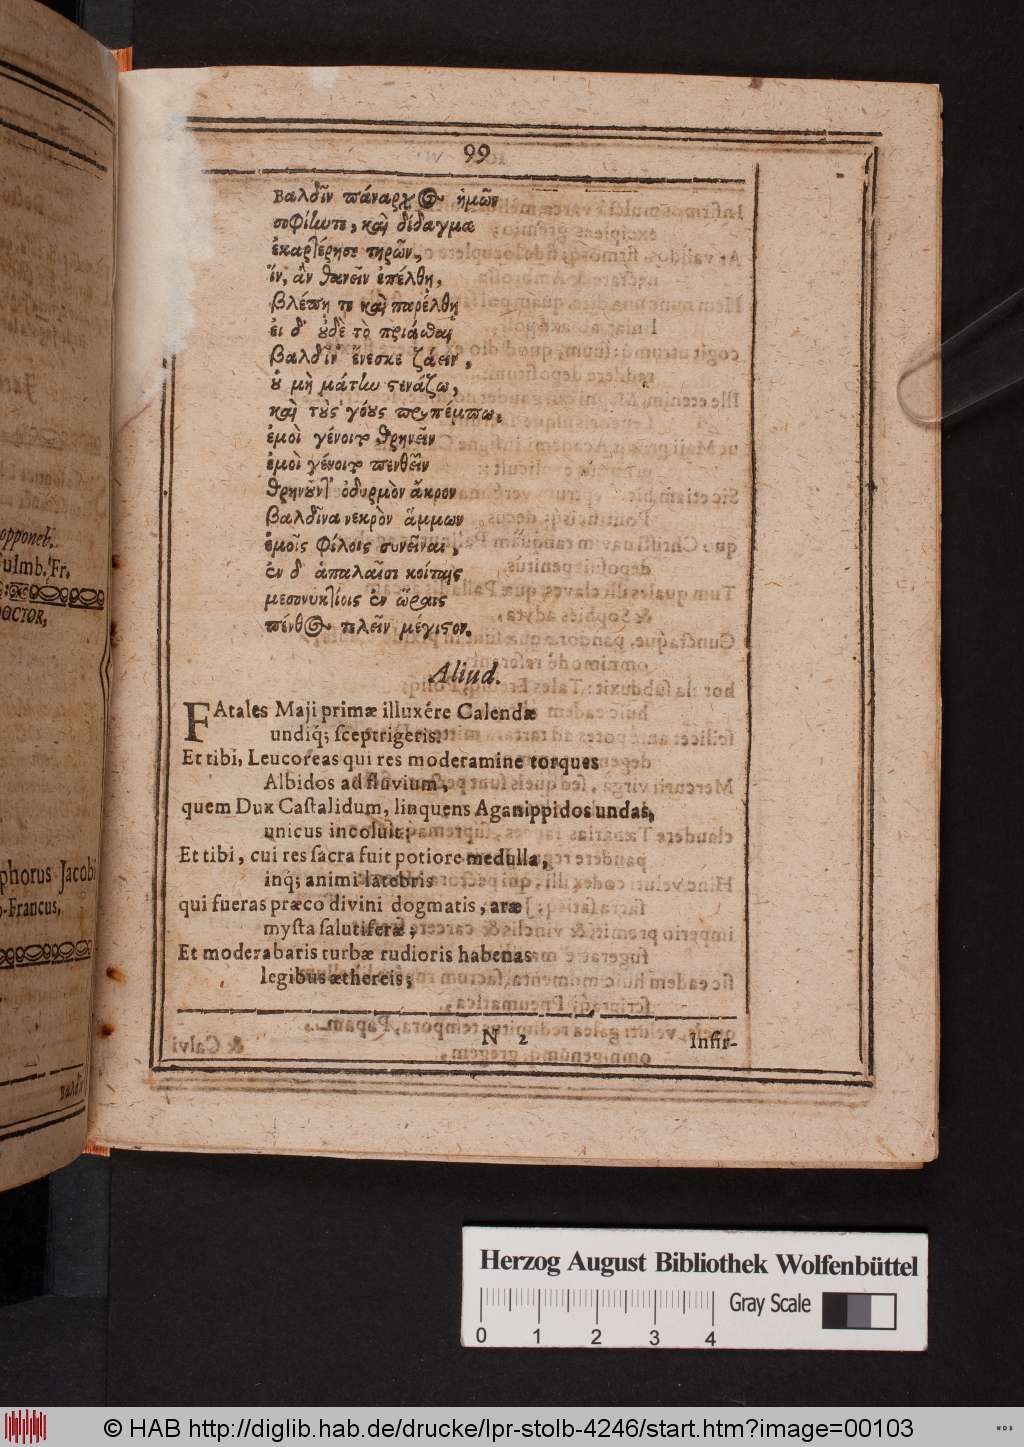 opponeb.
Culmb. Fr.
DOCTOR,
phorus Jacobi
o-Francus,
Βαλδι
99
Βαλδῖν πάναρχος ἡμῶν
σοφίω τε, καὶ δίδαγμα
ἐκαρτέρησε τηρῶν,
ἵν, ἂν θανεῖν ἐπέλθῃ,
βλέπῃ τε καὶ παρέλθῃ
εἰ δ' οὐδὲ τὸ πρίασθαι
Βαλδῖν' ἔνεσκε ζάειν,
οὐ μὴ μάτην στενάζω,
καὶ τοὺς γόους προπέμπω,
ἐμοὶ γένοιτο θρηνεῖν
ἐμοὶ γένοιτο πενθεῖν
θρηνοῦντ' ὀδυρμὸν ἄκρον
Βαλδῖνα νεκρὸν ἄμμων
ἐμοῖς φίλοις συνεῖναι,
ἐν δ' ἁπαλαῖσι κοίταις
μεσονυκτίοις ἐν ὥραις
πένθος τελεῖν μέγιστον.
Aliud.
FAtales Maji primæ illuxére Calendæ
undiq́; sceptrigeris:
Et tibi, Leucoreas qui res moderamine torques
Albidos ad fluvium,
quem Dux Castalidum, linquens Aganippidos undas,
unicus incoluit;
Et tibi, cui res sacra fuit potiore medulla,
inq́; animi latebris
qui fueras præco divini dogmatis, aræ
mysta salutiferæ;
Et moderabaris turbæ rudioris habenas
legibus æthereis;
N 2
Infir-
Herzog August Bibliothek Wolfenbüttel
Gray Scale
0 1 2 3 4
© HAB http://diglib.hab.de/drucke/lpr-stolb-4246/start.htm?image=00103